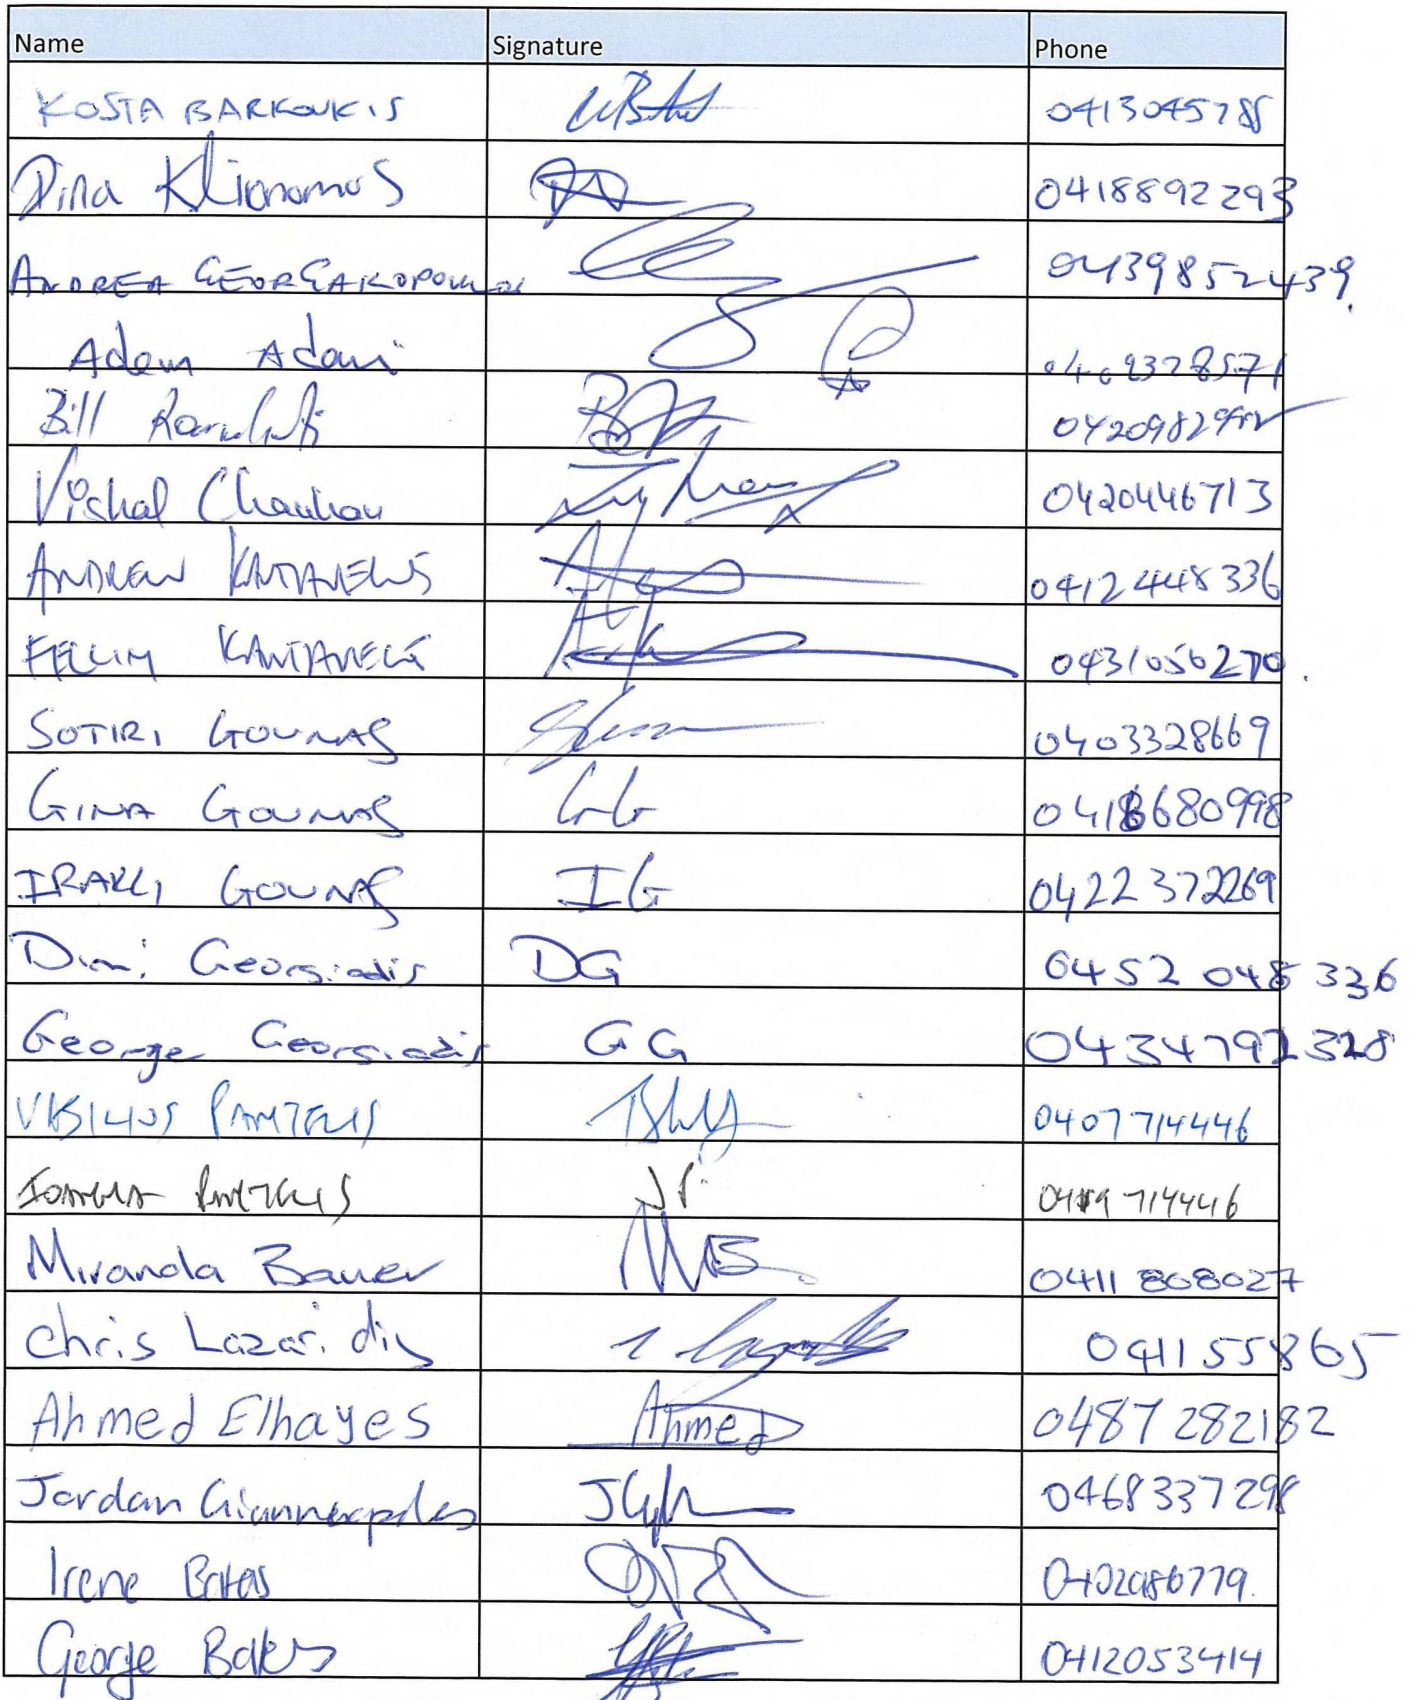 Name Signature Phone
KOSTA BARKOUKIS 0413045788
Dina Klionomos 0418892293
ANDREA GEORGAKOPOULOS 0439852439.
Adem Adani
Bill
Vishal Chauhan 0420446713
ANDREW KANTAVELIS 0412448336
KANTAVELIS 0431056270.
SOTIRI GOUNAS 0403328669
GINA GOUNAS GG 0418680998
IRAKLI GOUNAS IG 0422372269
Dimi Georgiadis DG 0452 048 336
George Georgiadis GG 0434792328
VASILIOS PANTELIS 0407714446
IOANNA PANTELIS JP. 714446
Miranda Bauer MB 0411 808027
Chris Lazaridis 041155865
Ahmed Elhayes Ahmed 0487 282182
Jordan 0468337298
Irene 
George 0412053414